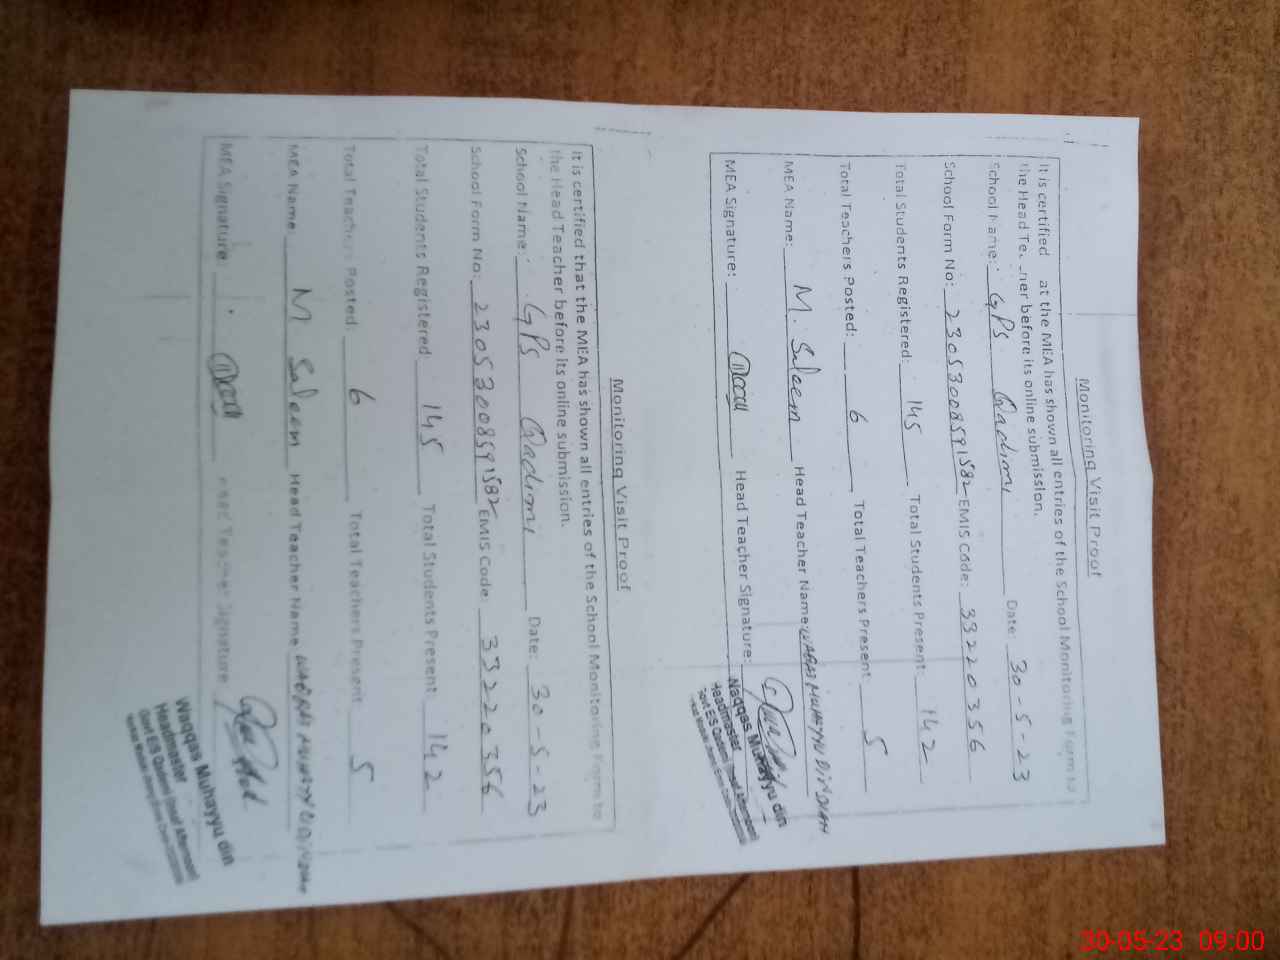 Monitoring Visit Proof
It is certified at the MEA has shown all entries of the School Monitoring Form to
the Head Te. .her before its online submission.
School Name: GPS Qadimi Date: 30-5-23
School Form No: 23053008591582 EMIS Code: 33220356
Total Students Registered: 145 Total Students Present: 142
Total Teachers Posted: 6 Total Teachers Present: 5
MEA Name: M. Saleem Head Teacher Name: WAQAS MUHAYYU DIN
MEA Signature: Head Teacher Signature:
Waqqas Muhayyu din
Headmaster
Monitoring Visit Proof
It is certified that the MEA has shown all entries of the School Monitoring Form to
the Head Teacher before its online submission.
School Name: GPS Qadimi Date: 30-5-23
School Form No: 23053008591582 EMIS Code: 33220356
Total Students Registered: 145 Total Students Present: 142
Total Teachers Posted: 6 Total Teachers Present: 5
MEA Name: M Saleem Head Teacher Name
MEA Signature: Head Teacher Signature:
Waqqas Muhayyu din
Headmaster
30-05-23 09:00